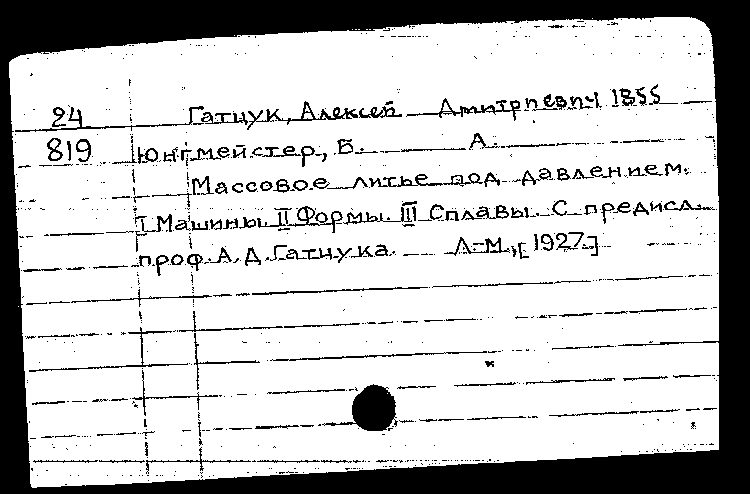 24 Гатцук, Алексей Дмитриевич 1855
819 Юнгмейстер, Б. А.
Массовое литье под давлением.
I Машины. II Формы. III Сплавы. С предисл.
проф. А. Д. Гатцука. Л-М., [1927.]